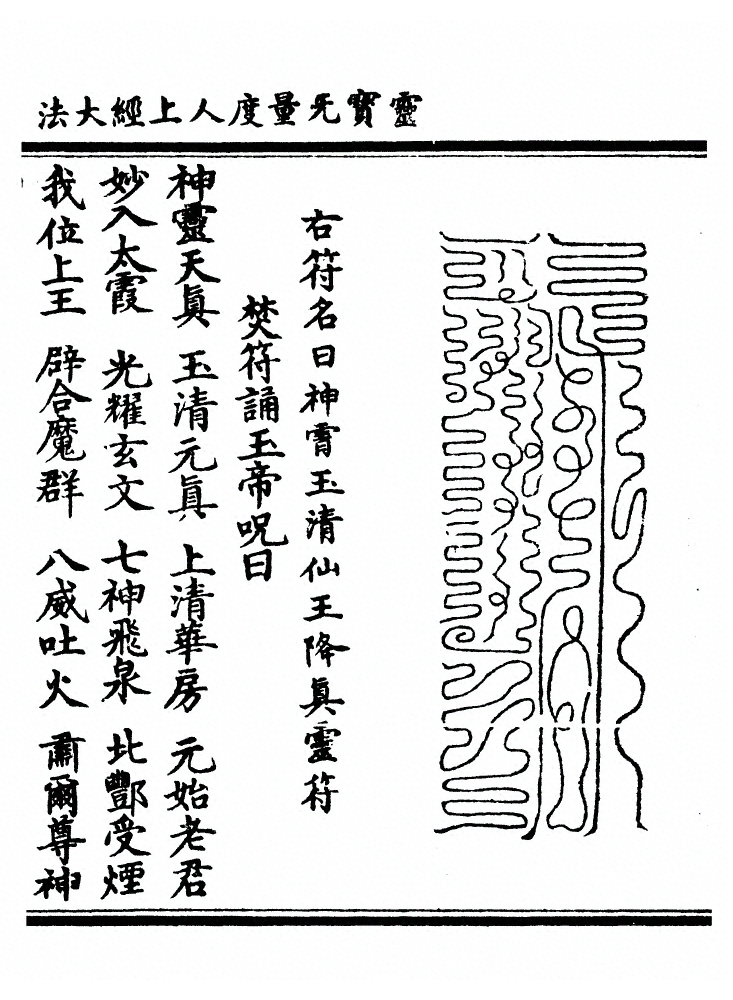 靈寶无量度人上經大法
右符名曰神霄玉清仙王降眞靈符
焚符誦玉帝呪曰
神靈天眞　玉清元眞　上清華房　元始老君
妙入太霞　光耀玄文　七神飛泉　北酆受煙
我位上王　辟合魔群　八威吐火　肅爾尊神